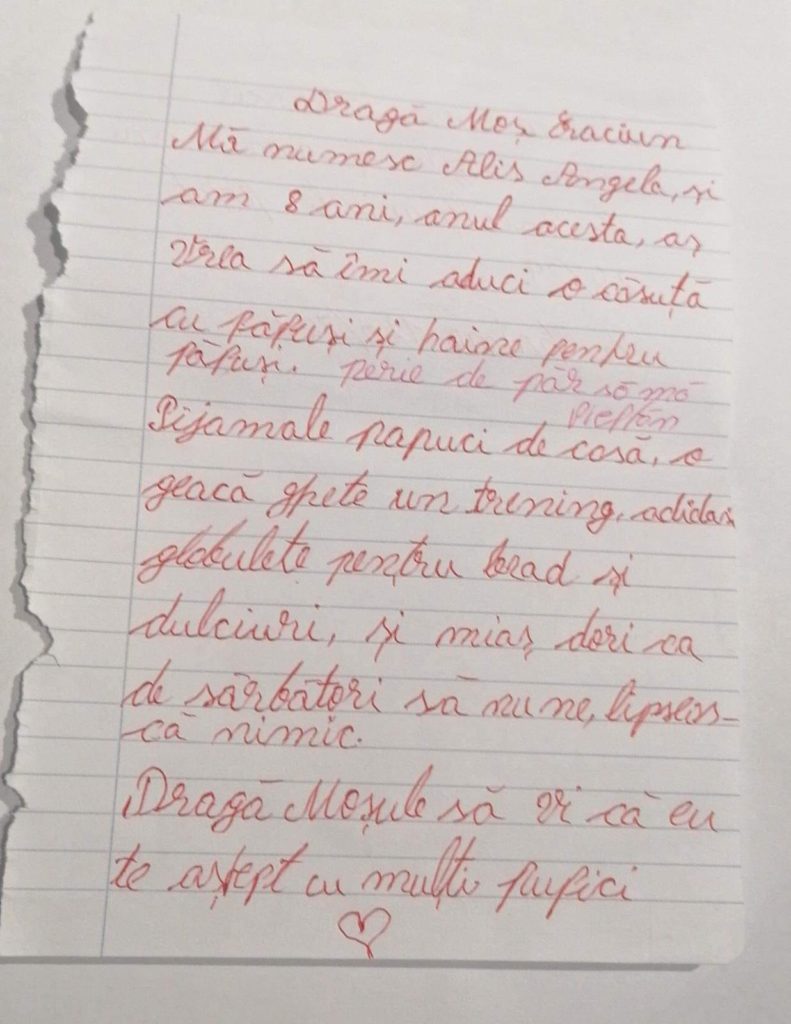 Dragă Moș Craciun
Mă numesc Alis Angela, și
am 8 ani, anul acesta, aș
vrea să îmi aduci o căsuță
cu păpuși și haine pentru
păpuși. perie de păr să mă
pieptăn
Pijamale papuci de casă, o
geacă ghete un trening, adidas
globulete pentru brad și
dulciuri, și miaș dori ca
de sărbători să nu ne, lipseas-
că nimic.
Dragă Moșule să vi că eu
te aștept cu mulți pupici